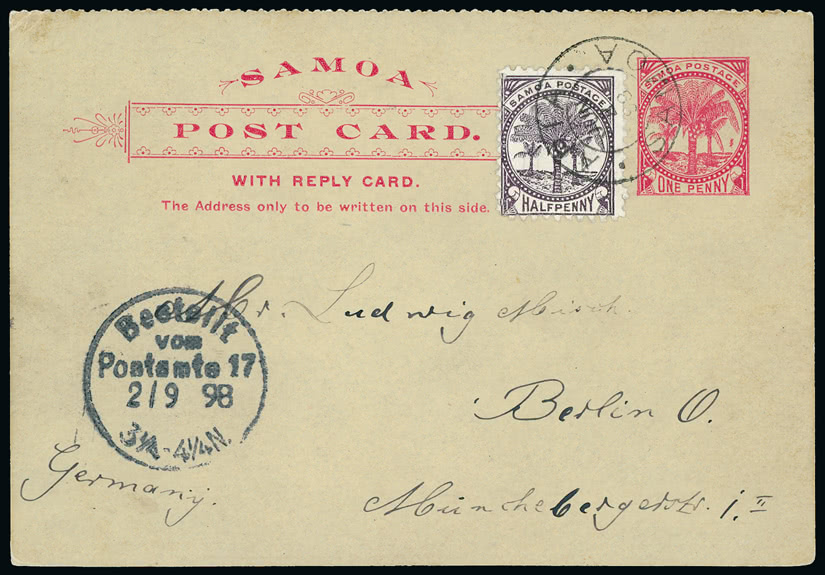 SAMOA
POST CARD.
WITH REPLY CARD.
The Address only to be written on this side.
SAMOA POSTAGE
HALFPENNY
SAMOA POSTAGE
ONE PENNY
Mr. Ludwig Misch.
Berlin O.
Münchebergerstr. 1. II
Germany.
Bestellt
vom
Postamte 17
2/9 98
3½-4¼N.